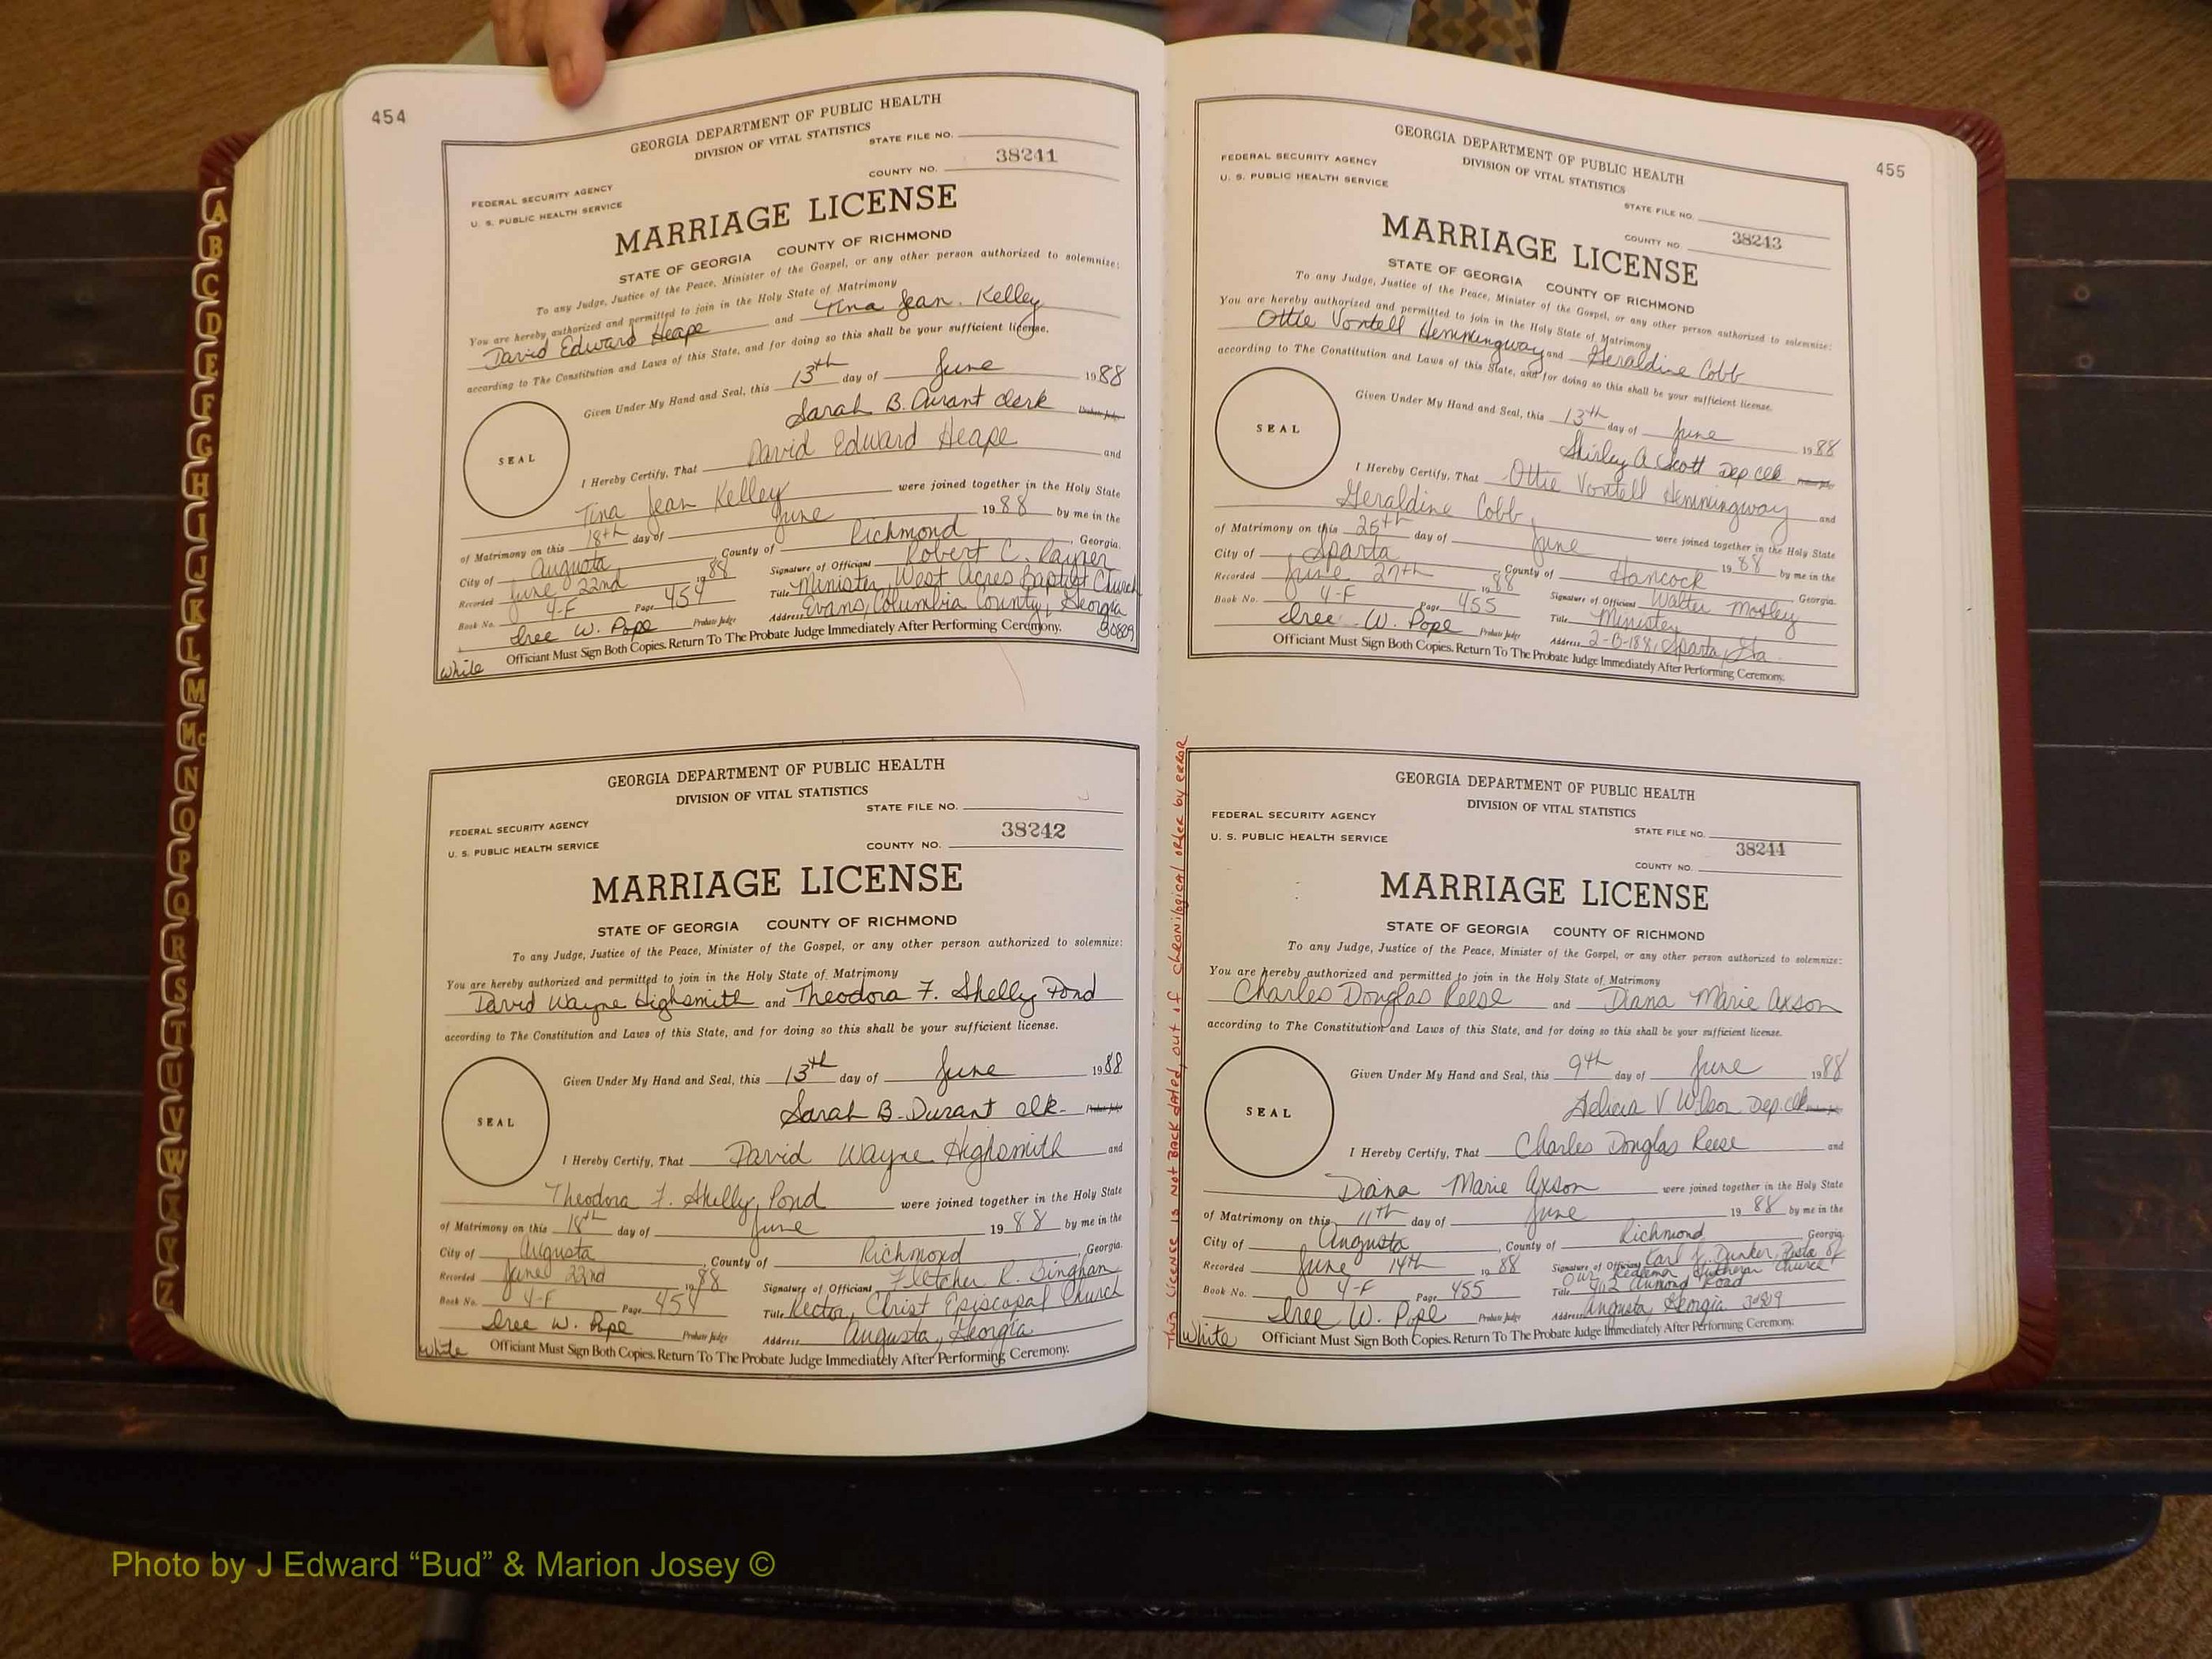 454
GEORGIA DEPARTMENT OF PUBLIC HEALTH
DIVISION OF VITAL STATISTICS
STATE FILE NO.
38241
COUNTY NO.
FEDERAL SECURITY AGENCY
U. S. PUBLIC HEALTH SERVICE
MARRIAGE LICENSE
STATE OF GEORGIA COUNTY OF RICHMOND
To any Judge, Justice of the Peace, Minister of the Gospel, or any other person authorized to solemnize:
You are hereby authorized and permitted to join in the Holy State of Matrimony
David Edward Heape and Tina Jean Kelley
according to The Constitution and Laws of this State, and for doing so this shall be your sufficient license.
Given Under My Hand and Seal, this 13th day of June 1988
Sarah B. Durant clerk Probate Judge
SEAL
I Hereby Certify, That David Edward Heape and
Tina Jean Kelley were joined together in the Holy State
of Matrimony on this 18th day of June 1988 by me in the
City of Augusta, County of Richmond, Georgia.
Recorded June 22nd 1988 Signature of Officiant Robert C. Rayner
Book No. 4-F Page 454 Title Minister, West Acres Baptist Church
Iree W. Pope Probate Judge Address Evans, Columbia County, Georgia 30809
Officiant Must Sign Both Copies. Return To The Probate Judge Immediately After Performing Ceremony.
White
GEORGIA DEPARTMENT OF PUBLIC HEALTH
DIVISION OF VITAL STATISTICS
STATE FILE NO.
38242
COUNTY NO.
FEDERAL SECURITY AGENCY
U. S. PUBLIC HEALTH SERVICE
MARRIAGE LICENSE
STATE OF GEORGIA COUNTY OF RICHMOND
To any Judge, Justice of the Peace, Minister of the Gospel, or any other person authorized to solemnize:
You are hereby authorized and permitted to join in the Holy State of Matrimony
David Wayne Highsmith and Theodora F. Shelly Pond
according to The Constitution and Laws of this State, and for doing so this shall be your sufficient license.
Given Under My Hand and Seal, this 13th day of June 1988
Sarah B. Durant clk. Probate Judge
SEAL
I Hereby Certify, That David Wayne Highsmith and
Theodora F. Shelly Pond were joined together in the Holy State
of Matrimony on this 18th day of June 1988 by me in the
City of Augusta, County of Richmond, Georgia.
Recorded June 22nd 1988 Signature of Officiant Fletcher R. Bingham
Book No. 4-F Page 454 Title Rector, Christ Episcopal Church
Iree W. Pope Probate Judge Address Augusta, Georgia
White Officiant Must Sign Both Copies. Return To The Probate Judge Immediately After Performing Ceremony.
455
GEORGIA DEPARTMENT OF PUBLIC HEALTH
DIVISION OF VITAL STATISTICS
FEDERAL SECURITY AGENCY
U. S. PUBLIC HEALTH SERVICE
STATE FILE NO.
COUNTY NO. 38243
MARRIAGE LICENSE
STATE OF GEORGIA COUNTY OF RICHMOND
To any Judge, Justice of the Peace, Minister of the Gospel, or any other person authorized to solemnize:
You are hereby authorized and permitted to join in the Holy State of Matrimony
Ottie Vontell Hemmingway and Geraldine Cobb
according to The Constitution and Laws of this State, and for doing so this shall be your sufficient license.
Given Under My Hand and Seal, this 13th day of June 1988
Shirley A. Scott Dep Clk
SEAL
I Hereby Certify, That Ottie Vontell Hemmingway and
Geraldine Cobb were joined together in the Holy State
of Matrimony on this 25th day of June 1988 by me in the
City of Sparta, County of Hancock Georgia.
Recorded June 27th 1988 Signature of Officiant Walter Mosley
Book No. 4-F Page 455 Title Minister
Iree W. Pope Probate Judge Address 2-B-188, Sparta, Ga.
Officiant Must Sign Both Copies. Return To The Probate Judge Immediately After Performing Ceremony.
This License is Not BACK dated, out of chronilogical order by ERROR
GEORGIA DEPARTMENT OF PUBLIC HEALTH
DIVISION OF VITAL STATISTICS
FEDERAL SECURITY AGENCY
U. S. PUBLIC HEALTH SERVICE
STATE FILE NO.
38244
COUNTY NO.
MARRIAGE LICENSE
STATE OF GEORGIA COUNTY OF RICHMOND
To any Judge, Justice of the Peace, Minister of the Gospel, or any other person authorized to solemnize:
You are hereby authorized and permitted to join in the Holy State of Matrimony
Charles Douglas Reese and Diana Marie Axson
according to The Constitution and Laws of this State, and for doing so this shall be your sufficient license.
Given Under My Hand and Seal, this 9th day of June 1988
Felicia V Wilson Dep. Clk
SEAL
I Hereby Certify, That Charles Douglas Reese and
Diana Marie Axson were joined together in the Holy State
of Matrimony on this 11th day of June 1988 by me in the
City of Augusta, County of Richmond Georgia.
Recorded June 14th 1988 Signature of Officiant Karl F. Dunker, of
Our Redeemer Lutheran Church
Book No. 4-F Page 455 Title 402 Aumond Road
Iree W. Pope Probate Judge Address Augusta, Georgia 30909
White Officiant Must Sign Both Copies. Return To The Probate Judge Immediately After Performing Ceremony.
A
B
C
D
E
F
G
H
I
J
K
L
M
Mc
N
O
P
Q
R
S
T
U
V
W
X
Y
Z
Photo by J Edward “Bud” & Marion Josey ©